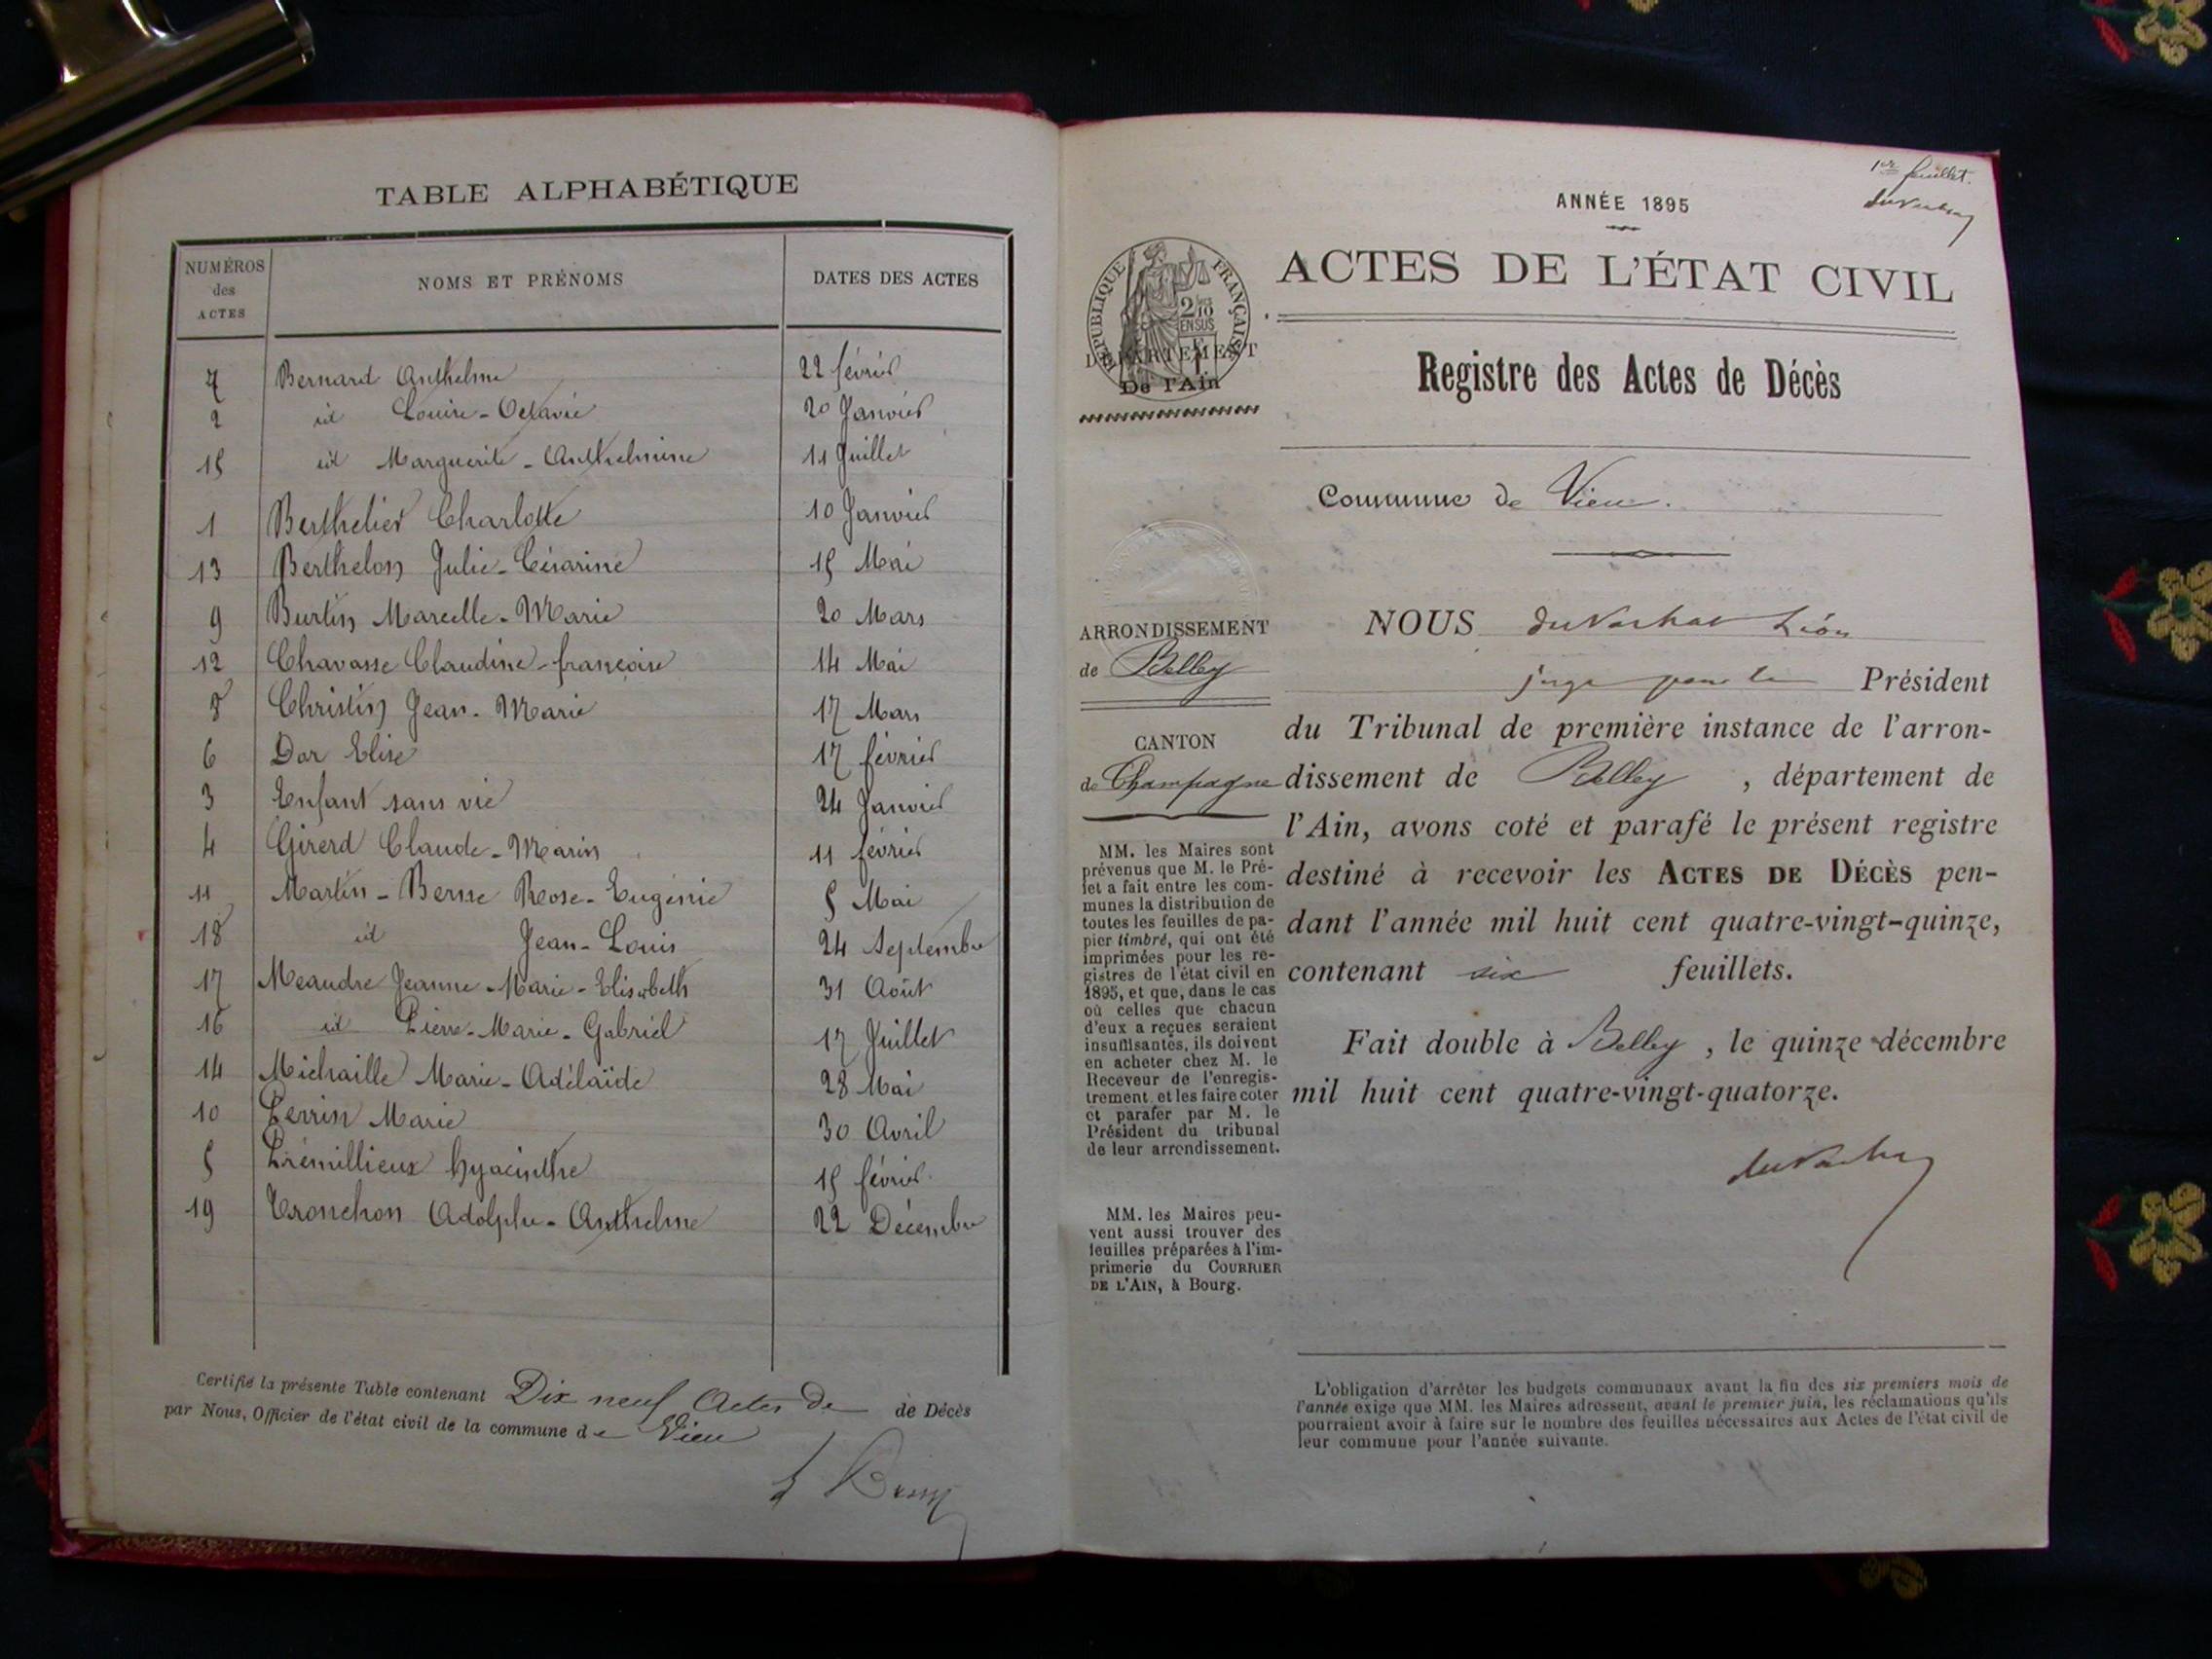 TABLE ALPHABÉTIQUE
NUMÉROS des ACTES NOMS ET PRÉNOMS DATES DES ACTES
7 Bernard Anthelme 22 février
2 id Louise-Octavie 20 Janvier
15 id Marguerite-Anthelmine 11 Juillet
1 Berthelier Charlotte 10 Janvier
13 Berthelon Julie-Césarine 15 Mai
9 Burtin Marcelle-Marie 20 Mars
12 Chavasse Claudine-françoise 14 Mai
8 Christin Jean-Marie 17 Mars
6 Dor Elise 17 février
3 Enfant sans vie 24 Janvier
4 Girerd Claude-Marin 11 février
11 Martin-Berne Rose-Eugénie 5 Mai
18 id Jean-Louis 24 Septembre
17 Meaudre Jeanne-Marie-Elisabeth 31 Août
16 id Pierre-Marie-Gabriel 17 Juillet
14 Michaille Marie-Adélaïde 28 Mai
10 Perrin Marie 30 Avril
5 Prémillieux hyacinthe 15 février
19 Tronchon Adolphe-Anthelme 22 Décembre
Certifié la présente Table contenant Dix neuf Actes de de Décès
par Nous, Officier de l'état civil de la commune de Vieu
1er feuillet.
ANNÉE 1895
ACTES DE L'ÉTAT CIVIL
RÉPUBLIQUE FRANÇAISE
2/10 EN SUS
DÉPARTEMENT
De l'Ain
Registre des Actes de Décès
Commune de Vieu.
ARRONDISSEMENT
de Belley
CANTON
de Champagne
MM. les Maires sont
prévenus que M. le Pré-
fet a fait entre les com-
munes la distribution de
toutes les feuilles de pa-
pier timbré, qui ont été
imprimées pour les re-
gistres de l'état civil en
1895, et que, dans le cas
où celles que chacun
d'eux a reçues seraient
insuffisantes, ils doivent
en acheter chez M. le
Receveur de l'enregis-
trement et les faire coter
et parafer par M. le
Président du tribunal
de leur arrondissement.
MM. les Maires peu-
vent aussi trouver des
feuilles préparées à l'im-
primerie du COURRIER
DE L'AIN, à Bourg.
NOUS duVachat Léon
juge pour le Président
du Tribunal de première instance de l'arron-
dissement de Belley, département de
l'Ain, avons coté et parafé le présent registre
destiné à recevoir les ACTES DE DÉCÈS pen-
dant l'année mil huit cent quatre-vingt-quinze,
contenant six feuillets.
Fait double à Belley, le quinze décembre
mil huit cent quatre-vingt-quatorze.
duVachat
L'obligation d'arrêter les budgets communaux avant la fin des six premiers mois de
l'année exige que MM. les Maires adressent, avant le premier juin, les réclamations qu'ils
pourraient avoir à faire sur le nombre des feuilles nécessaires aux Actes de l'état civil de
leur commune pour l'année suivante.